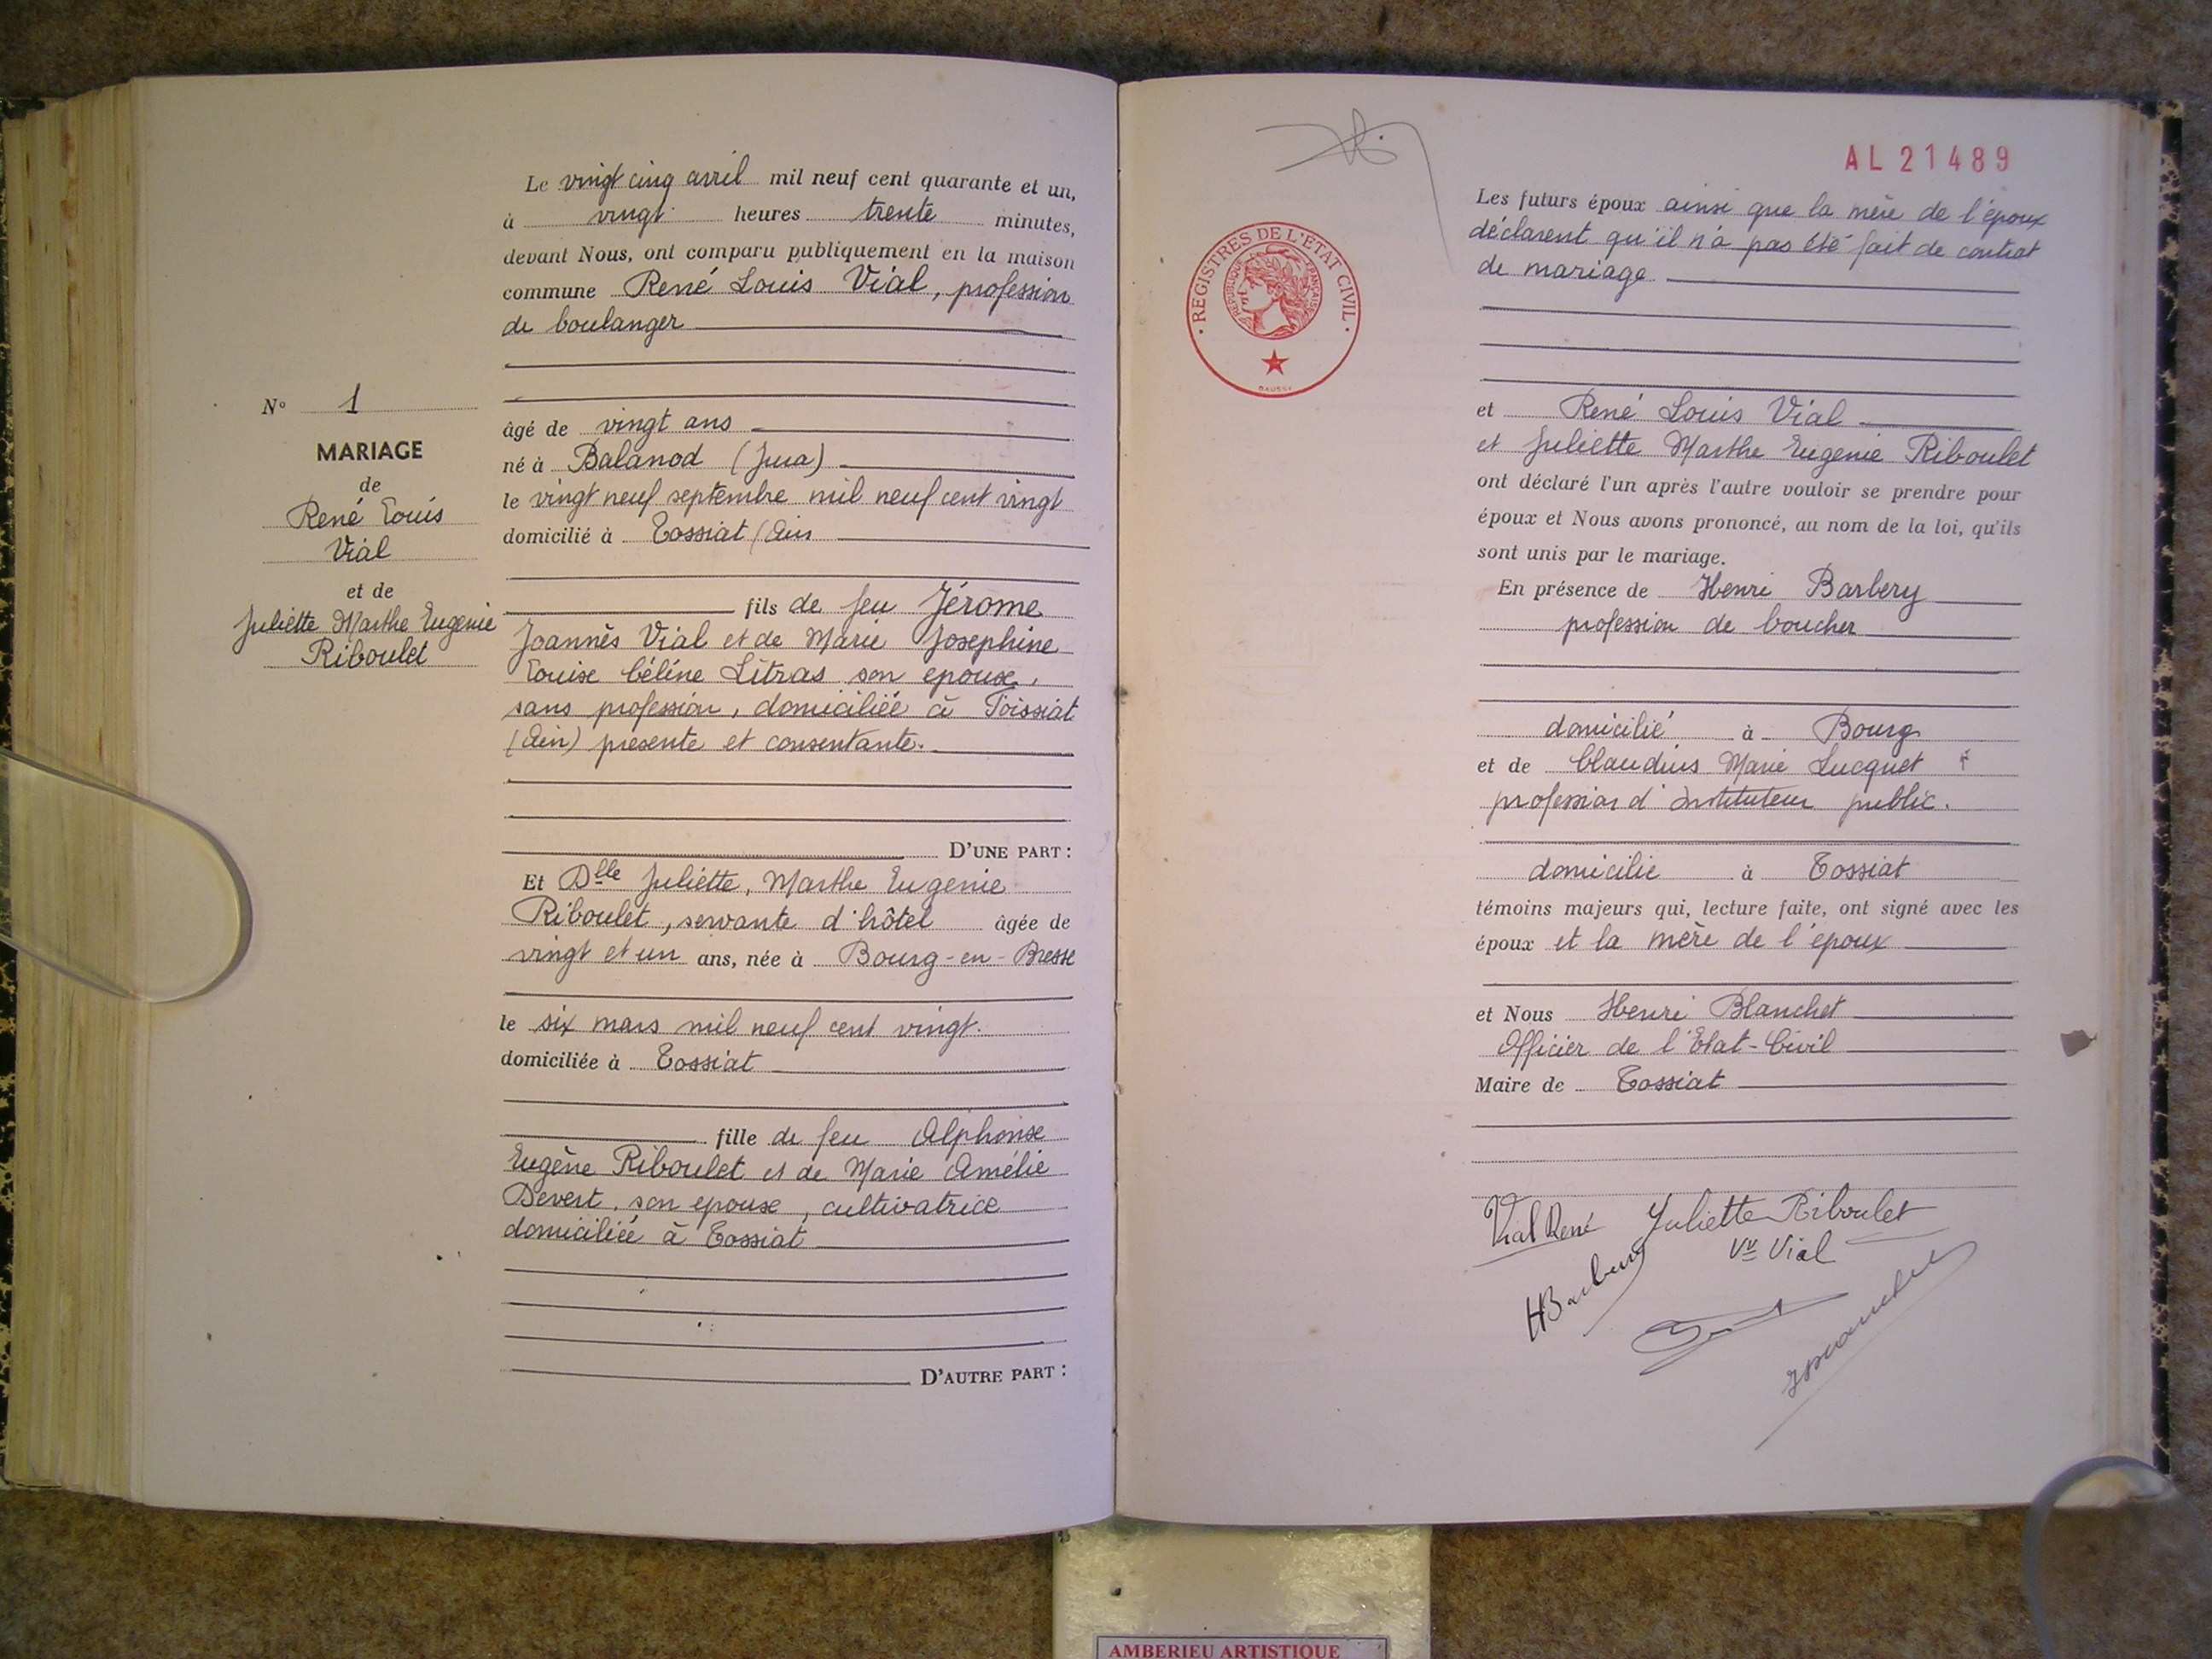 Le vingt cinq avril mil neuf cent quarante et un,
à vingt heures trente minutes,
devant Nous, ont comparu publiquement en la maison
commune René Louis Vial, profession
de boulanger
âgé de vingt ans
né à Balanod (Jura)
le vingt neuf septembre mil neuf cent vingt
domicilié à Tossiat (Ain
fils de feu Jérome
Joannès Vial et de Marie Josephine
Louise Céline Litras son epouse,
sans profession, domiciliée à Toissiat
(Ain) presente et consentante.
D'UNE PART :
Et Dlle Juliette, Marthe Eugenie
Riboulet, servante d'hôtel âgée de
vingt et un ans, née à Bourg-en-Bresse
le six mars mil neuf cent vingt.
domiciliée à Tossiat
fille de feu Alphonse
Eugène Riboulet et de Marie Amélie
Devert, son epouse, cultivatrice
domiciliée à Tossiat
D'AUTRE PART :
No 1
MARIAGE
de
René Louis
Vial
et de
Juliette Marthe Eugenie
Riboulet
AL 21489
REGISTRES DE L'ETAT CIVIL
REPUBLIQUE FRANÇAISE
Les futurs époux ainsi que la mère de l'époux
déclarent qu'il n'a pas été fait de contrat
de mariage
et René Louis Vial
et Juliette Marthe Eugenie Riboulet
ont déclaré l'un après l'autre vouloir se prendre pour
époux et Nous avons prononcé, au nom de la loi, qu'ils
sont unis par le mariage.
En présence de Henri Barbery
profession de boucher
domicilié à Bourg
et de Claudius Marie Lucquet
profession d'instituteur public.
domicilie à Tossiat
témoins majeurs qui, lecture faite, ont signé avec les
époux et la mère de l'epoux
et Nous Henri Blanchet
Officier de l'Etat-Civil
Maire de Tossiat
Vial René Juliette Riboulet
Vve Vial
HBarbery
HBlanchet
AMBERIEU ARTISTIQUE